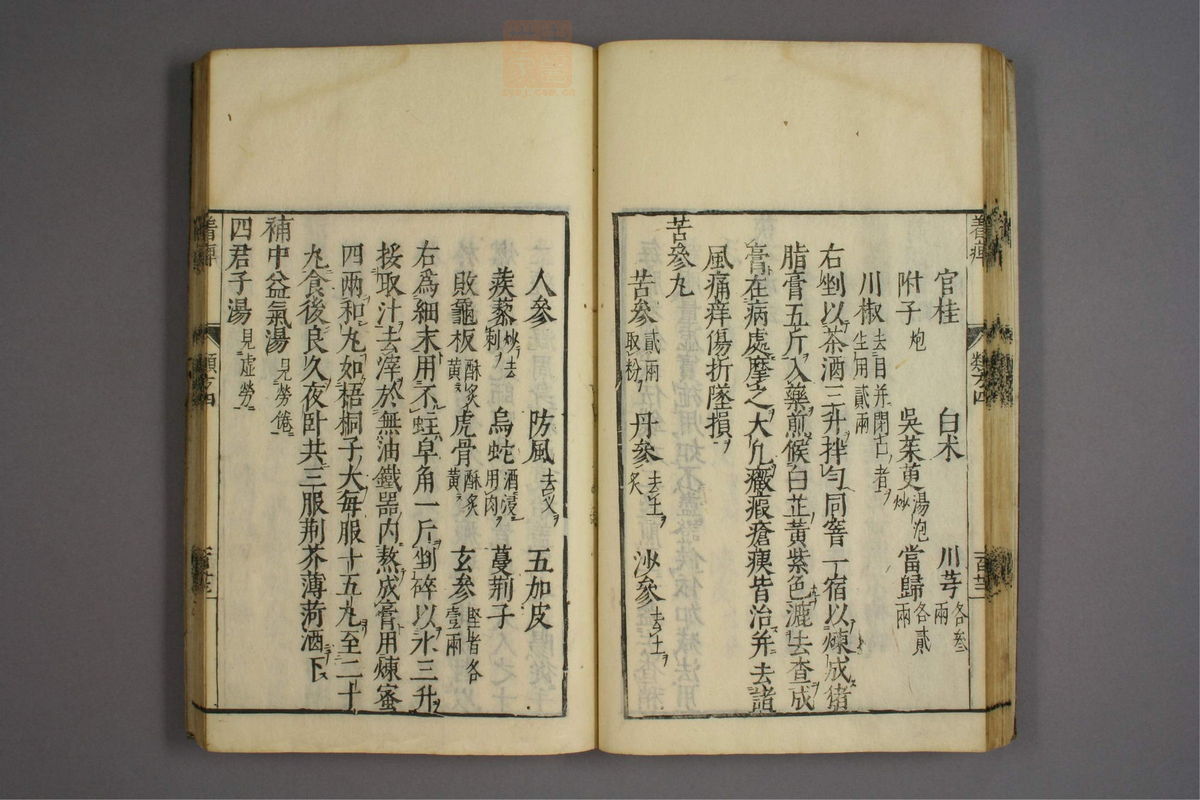 官桂 白术 川芎各叁兩
附子炮 吳茱萸湯泡炒 當歸各貳兩
川椒去目并閉口者生用貳兩
右剉以茶酒三升拌勻同窨一宿以煉成猪
脂膏五斤入藥煎候白芷黃紫色漉去查成
膏在病處摩之大凡癥瘕瘡痍皆治并去諸
風痛痒傷折墜損
苦參丸
苦參貳兩取粉 丹參去土炙 沙參去土
人參 防風去叉 五加皮
蒺藜炒去刺 烏蛇酒浸用肉 蔓荆子
敗龜板酥炙黃 虎骨酥炙黃 玄參堅者各壹兩
右爲細末用不蛀皁角一斤剉碎以水三升
挼取汁去滓於無油鐵器内熬成膏用煉蜜
四兩和丸如梧桐子大每服十五丸至二十
丸食後良久夜卧共三服荆芥薄荷酒下
補中益氣湯見勞倦
四君子湯見虛勞
類方四